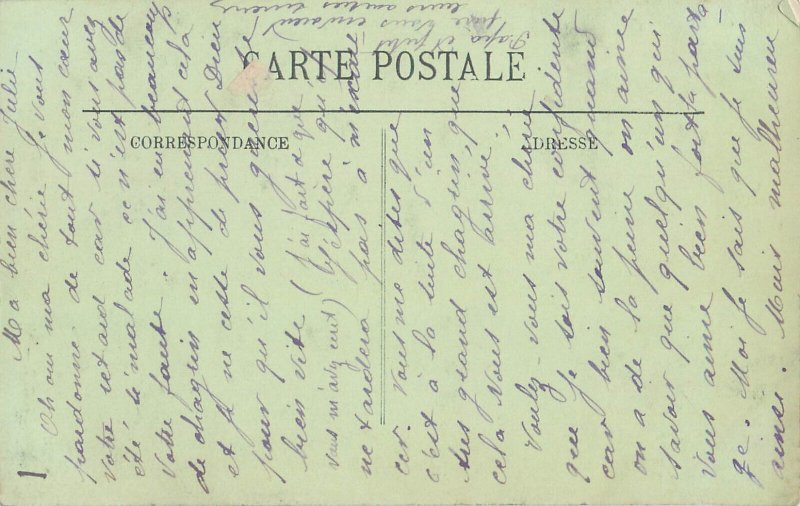 CARTE POSTALE
CORRESPONDANCE
ADRESSE
Ma bien chère Julie
Oh oui ma chérie je vous
pardonne de tout mon cœur
votre retard car si vous avez
été si malade ce n'est pas de
votre faute. J'ai eu beaucoup
de chagrin en apprenant cela
et je ne cesse de prier Dieu
pour qu'il vous guérisse
bien vite (j'ai fait ce que
vous m'avez dit) J'espère qu'il
ne tardera pas à
car vous me dites que
c'est à la suite d'un
très grand chagrin que
cela vous est arrivé.
Voulez-vous ma chère
que je sois votre confidente
car bien souvent quand
on a de la peine on aime
savoir que quelqu'un qui
vous aime bien fort la parta-
ge. Moi je sais que je suis
ainsi. Mais malheureu
Papa et
vous envoient
leurs
1